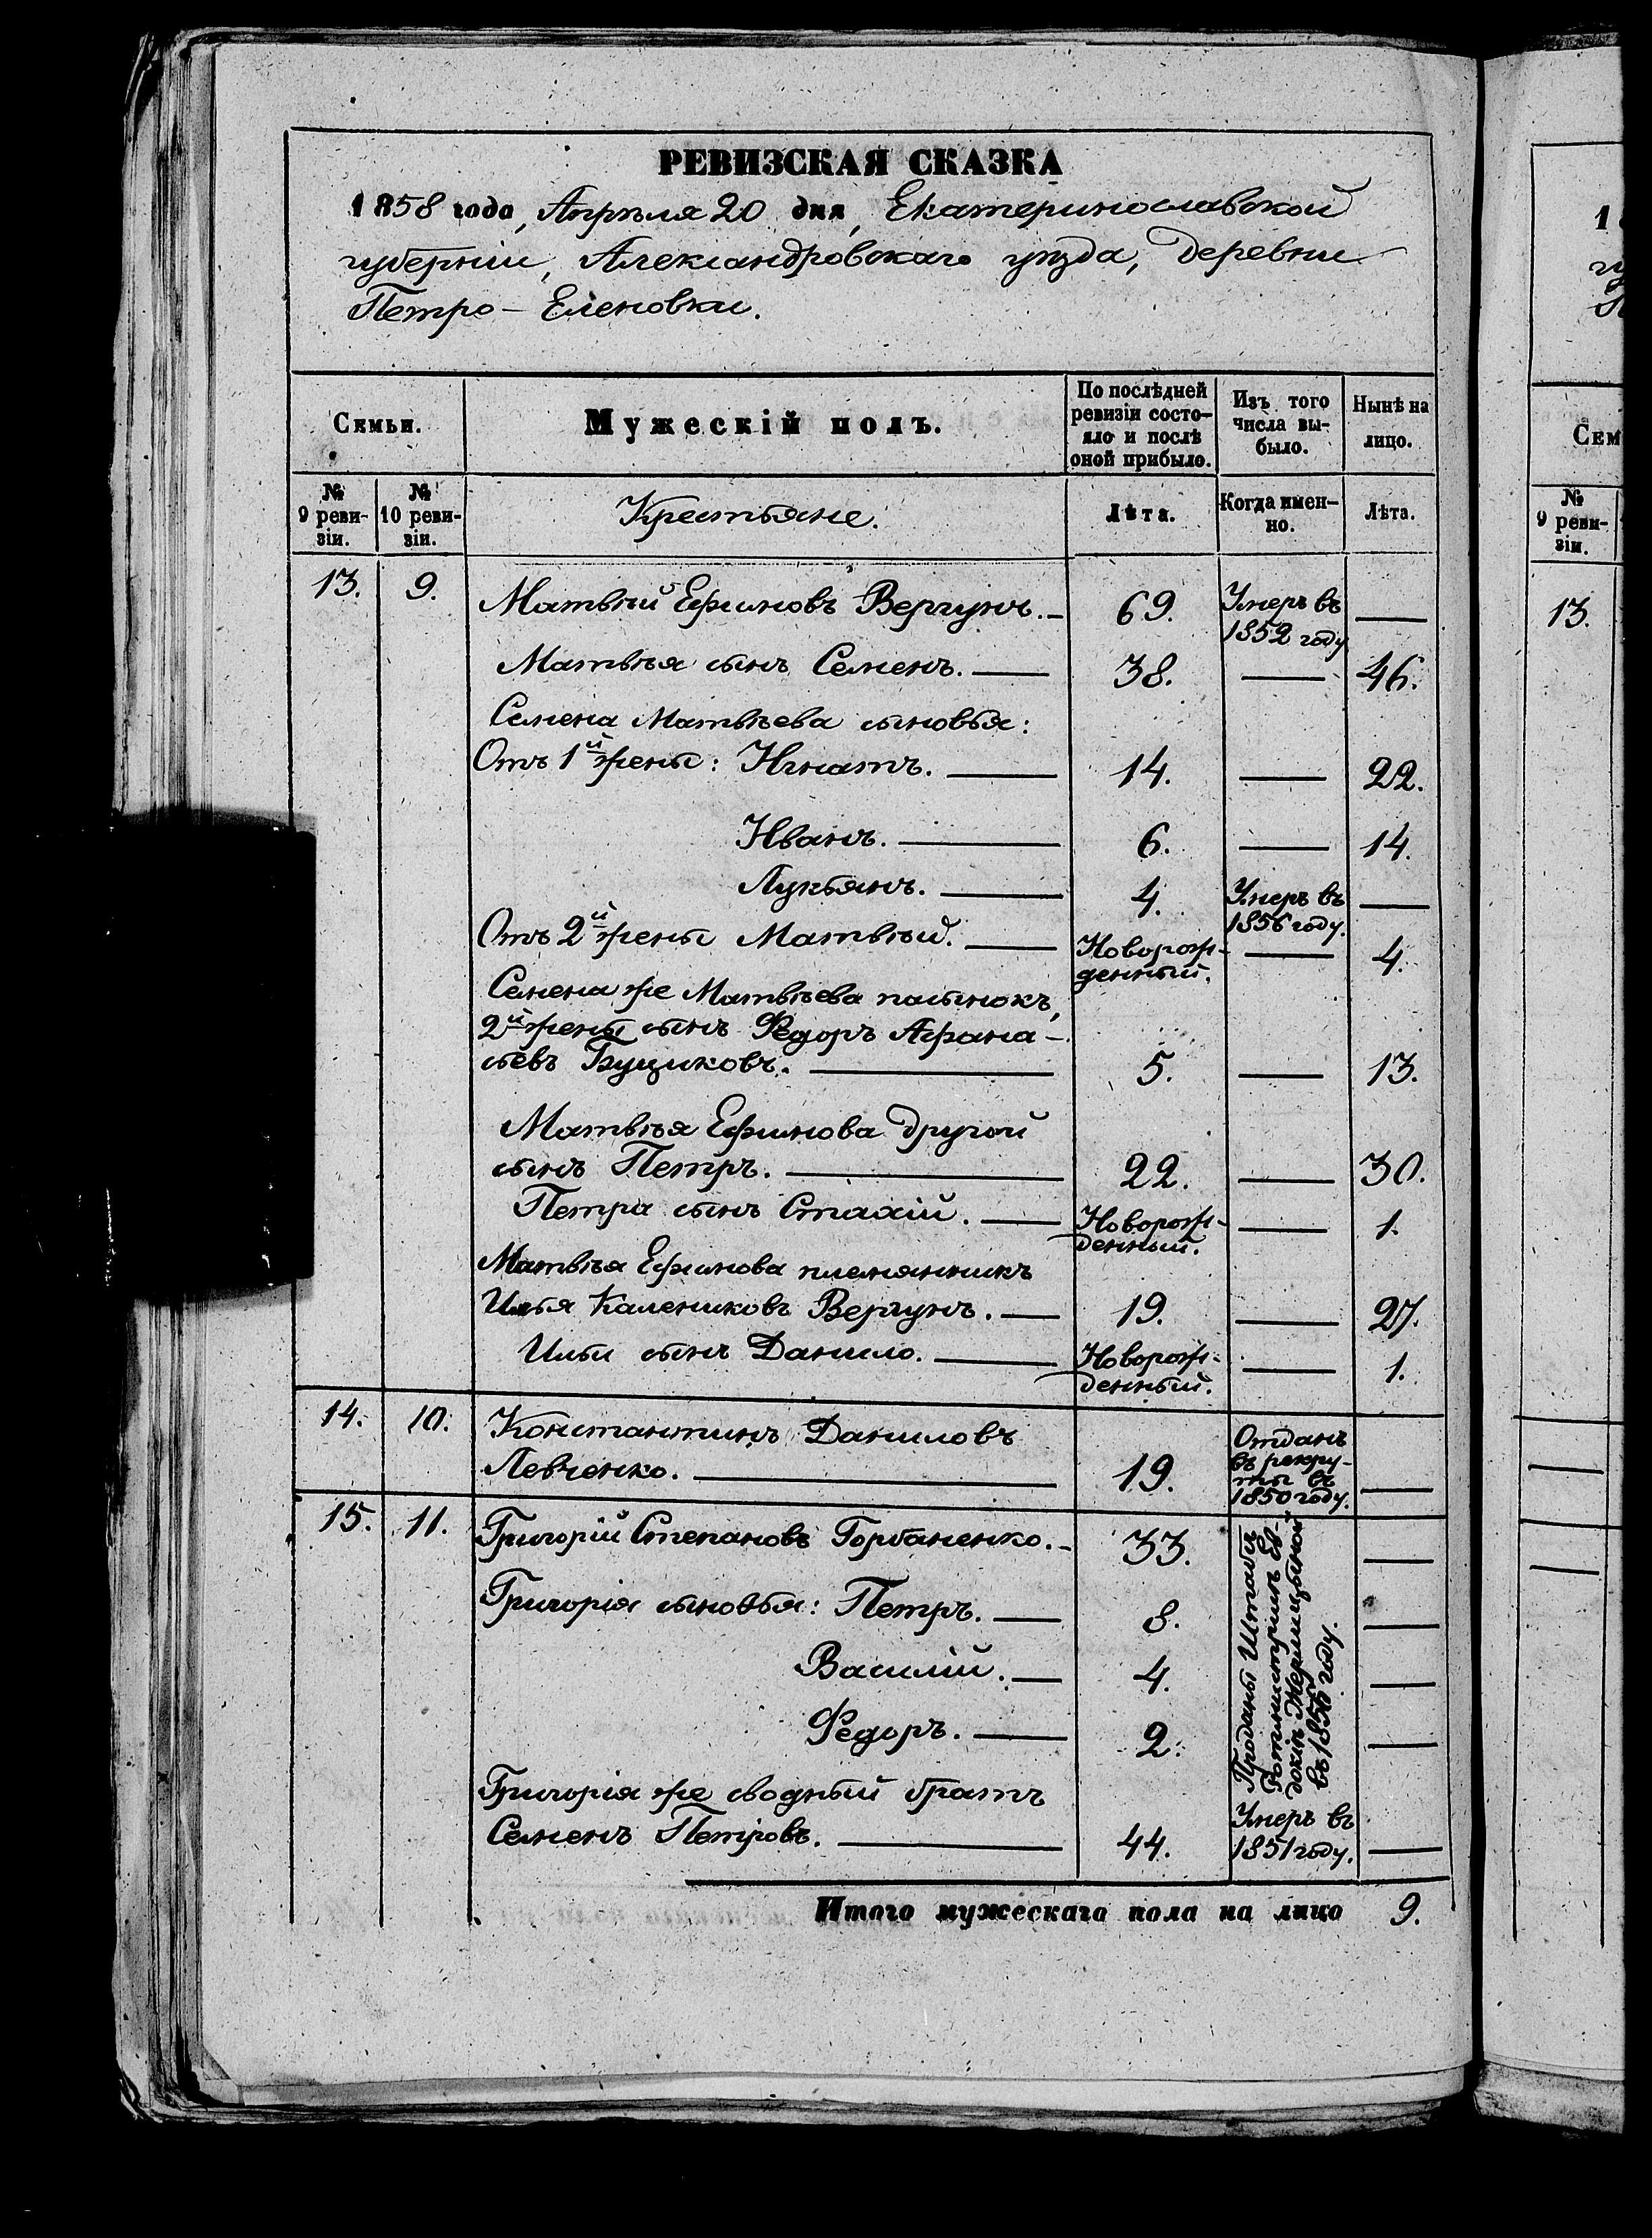 РЕВИЗСКАЯ СКАЗКА
1858 года, Апрѣля 20 дня, Екатеринославской
губерніи, Александровскаго уѣзда, деревни
Петро-Еленовки.
Семьи.
Мужескій полъ.
По послѣдней ревизіи состо-
яло и послѣ оной прибыло.
Изъ того числа вы-
было.
Нынѣ на лицо.
№ 9 реви-
зіи.
№ 10 реви-
зіи.
Крестьяне.
Лѣта.
Когда имен-
но.
Лѣта.
13. 9. Матвѣй Ефимовъ Вергунъ. 69. Умеръ въ
1852 году —
Матвѣя сынъ Семенъ. — 38. — 46.
Семена Матвѣева сыновья:
Отъ 1й жены: Игнатъ. — 14. — 22.
Иванъ. — 6. — 14.
Лукьянъ. — 4. Умеръ въ
1856 году. —
Отъ 2й жены Матвѣй. — Новорож-
денный. — 4.
Семена же Матвѣева пасынокъ,
2й жены сынъ Федоръ Афана-
сьевъ Бущиковъ. — 5. — 13.
Матвѣя Ефимова другой
сынъ Петръ. — 22. — 30.
Петра сынъ Стахій. — Новорож-
денный. — 1.
Матвѣя Ефимова племянникъ
Илья Калениковъ Вергунъ. — 19. — 27.
Ильи сынъ Данило. — Новорож-
денный. — 1.
14. 10. Константинъ Даниловъ
Левченко. — 19. Отданъ
въ рекру-
ты въ
1850 году. —
15. 11. Григорій Степановъ Горбаненко. — 33. —
Григорія сыновья: Петръ. — 8. —
Василій. — 4. —
Федоръ. — 2. —
Проданы Штабъ
Ротмистршѣ Ев-
докіѣ
въ 1856 году.
Григорія же сводный братъ
Семенъ Петровъ. — 44. Умеръ въ
1851 году. —
Итого мужескаго пола на лицо 9.
1
СЕМ
№ 9 реви-
зіи.
13.